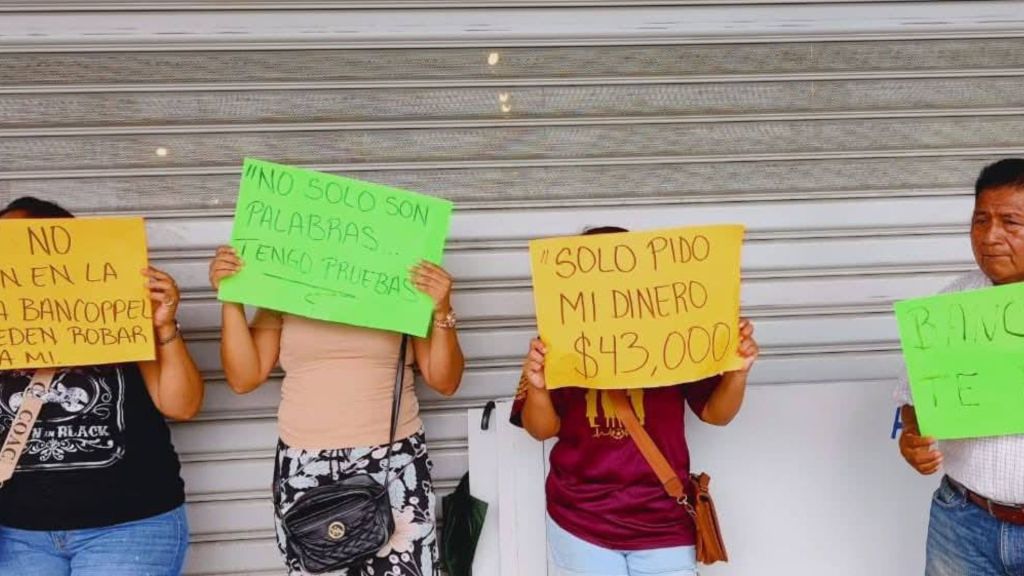 NO
EN LA
BANCOPPEL
ROBAR
A MI.
"NO SOLO SON
PALABRAS...
TENGO PRUEBAS
"SOLO PIDO
MI DINERO
$43,000
BANC
TE
COAC
IN BLACK